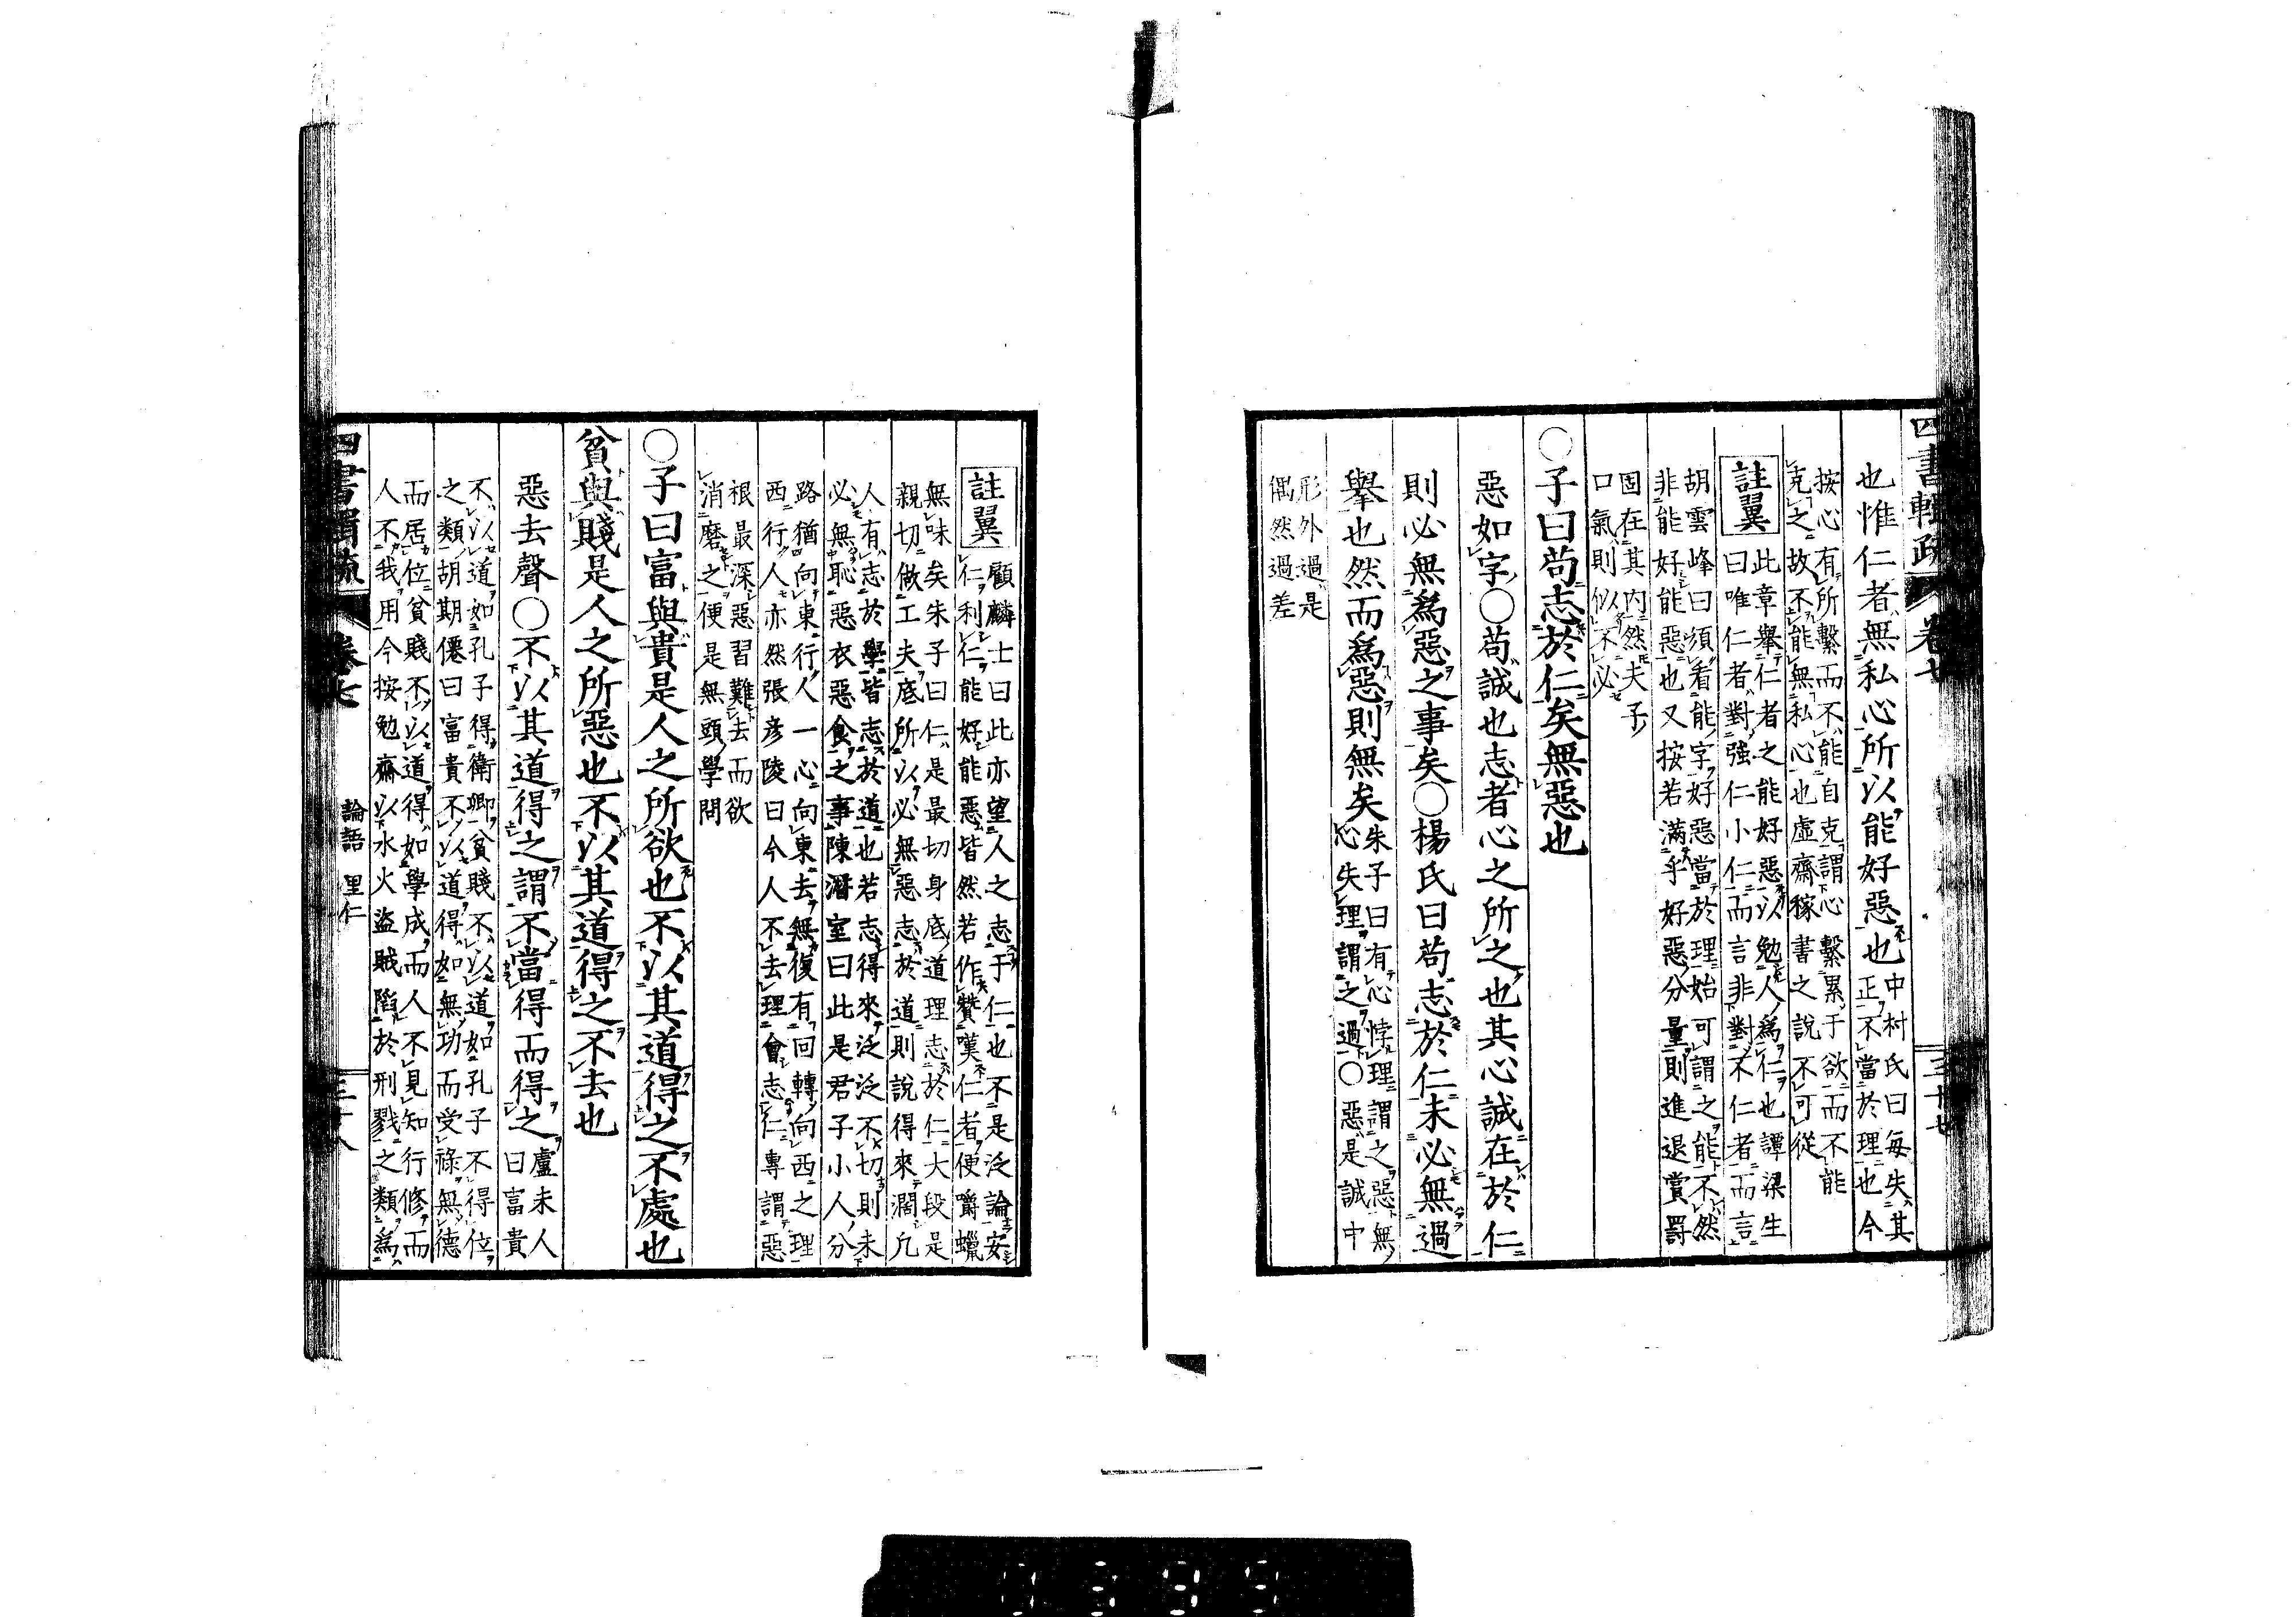 四書輯疏 卷七
也惟仁者無私心所以能好惡也中村氏曰毎失其
正不當於理也今
按心有所繫而不能自克謂心繫累于欲而不能
克之故不能無私心也虛齋稼書之說不可從
註翼 此章舉仁者之能好惡以勉人爲仁也譚梁生
曰唯仁者對強仁小仁而言非對不仁者而言
胡雲峰曰須看能字好惡當於理始可謂之能不然
非能好能惡也又按若滿乎好惡分量則進退賞罰
固在其内然夫子
口氣則似不必
○子曰苟志於仁矣無惡也
惡如字○苟誠也志者心之所之也其心誠在於仁
則必無爲惡之事矣○楊氏曰苟志於仁未必無過
舉也然而爲惡則無矣朱子曰有心悖理謂之惡無
心失理謂之過○惡是誠中
形外過是
偶然過差
註翼 顧麟士曰此亦望人之志于仁也不是泛論安
仁利仁能好能惡皆然若作贊嘆仁者便嚼蠟
無味矣朱子曰仁是最切身底道理志於仁大段是
親切做工夫底所以必無惡志於道則說得來濶凡
人有志於學皆志於道也若志得來泛泛不切則未
必無恥惡衣惡食之事陳潛室曰此是君子小人分
路猶向東行人一心向東去無復有回轉向西之理
西行人亦然張彥陵曰今人不去理會志仁專謂惡
根最深惡習難去而欲
消磨之便是無頭學問
○子曰富與貴是人之所欲也不以其道得之不處也
貧與賤是人之所惡也不以其道得之不去也
惡去聲○不以其道得之謂不當得而得之盧未人
曰富貴
不以道如孔子得衛卿貧賤不以道如孔子不得位
之類胡期僊曰富貴不以道得如無功而受祿無德
而居位貧賤不以道得如學成而人不見知行修而
人不我用今按勉齋以水火盜賊陷於刑戮之類爲
四書輯疏 卷七 論語 里仁 三十八